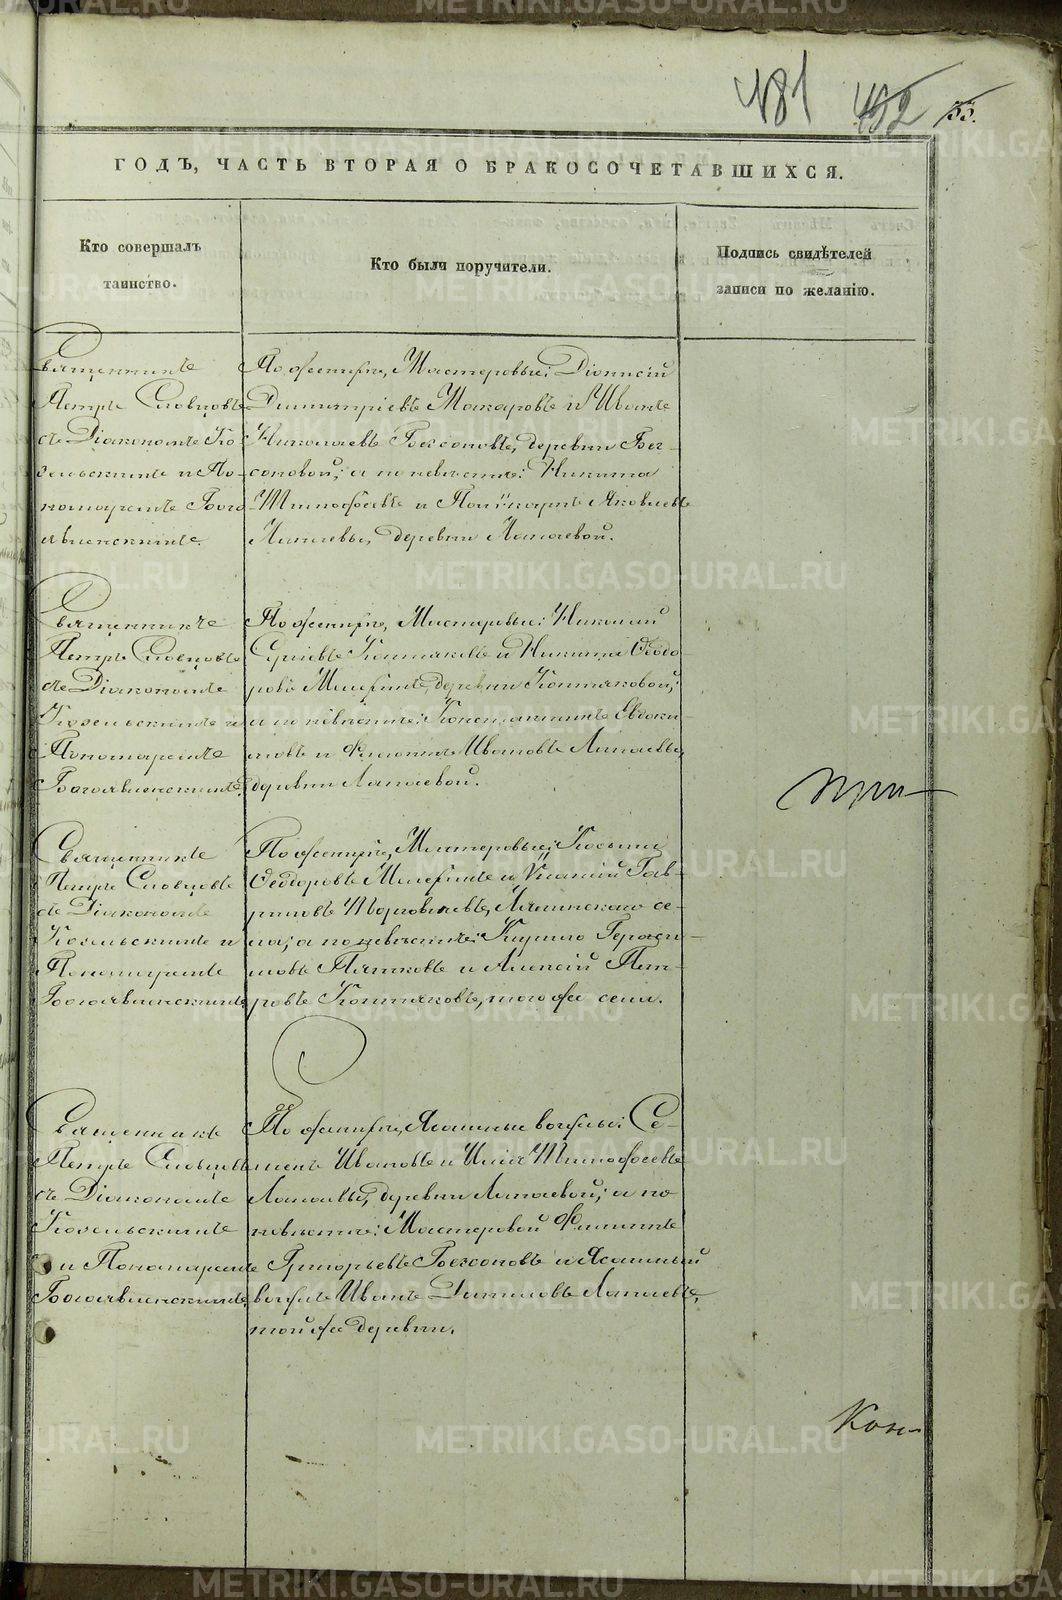 481 492 55.
ГОДЪ, ЧАСТЬ ВТОРАЯ О БРАКОСОЧЕТАВШИХСЯ.
Кто совершалъ
таинство.
Кто были поручители.
Подпись свидѣтелей
записи по желанію.
Священникъ
Петръ Словцовъ
съ Діакономъ Ко-
зельскимъ и По-
номаремъ Бого-
явленскимъ.
По женихѣ, Мастеровые: Діонисій
Димитріевъ Макаровъ и Иванъ
Николаевъ Боксоновъ, деревни
а по невѣстѣ: Никита
Тимоѳеевъ и Поликарпъ Яковлевъ
Липаевы, деревни Липаевой.
Священникъ
Петръ Словцовъ
съ Діакономъ
Козельскимъ и
Пономаремъ
Богоявленскимъ.
По женихѣ, Мастеровые: Николай
Сергіевъ Колташовъ и Никита Ѳеодо-
ровъ деревни
а по невѣстѣ: Константинъ Евдоки-
мовъ и Филиппъ Ивановъ Липаевы,
деревни Липаевой.
При-
Священникъ
Петръ Словцовъ
съ Діакономъ
Козельскимъ и
Пономаремъ
Богоявленскимъ
По женихѣ, Мастеровые: Косьма
Ѳеодоровъ и Гав-
риловъ се-
ла; а по невѣстѣ: Кирило Гераси-
мовъ Пятковъ и Алексій Пет-
ровъ того же села.
Священникъ
Петръ Словцовъ
съ Діакономъ
Козельскимъ
и Пономаремъ
Богоявленскимъ,
По женихѣ, Ясашные вогулы: Се-
менъ Ивановъ и Илья Тимоѳеевъ
Липаевы, деревни Липаевой; а по
невѣстѣ: Мастеровой Филиппъ
Григорьевъ Боксоновъ и Ясашный
вогулъ Иванъ Даниловъ Липаевъ,
той же деревни.